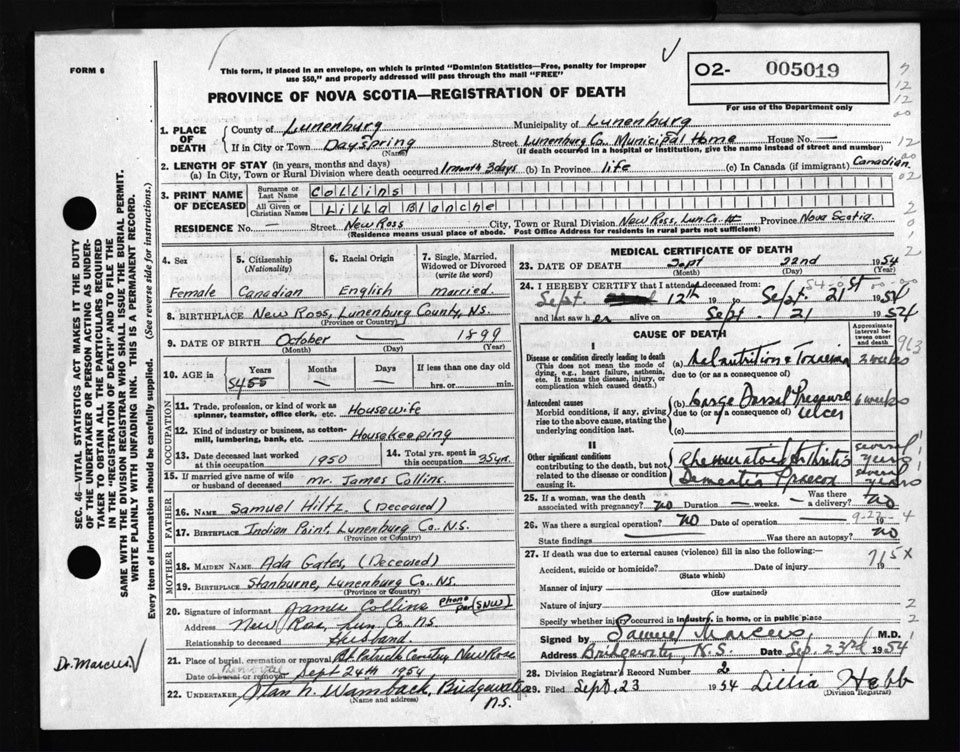 FORM 6
This form, if placed in an envelope, on which is printed "Dominion Statistics—Free, penalty for improper
use $50," and properly addressed will pass through the mail "FREE"
PROVINCE OF NOVA SCOTIA—REGISTRATION OF DEATH
O2- 005019
For use of the Department only
1. PLACE OF DEATH { County of Lunenburg Municipality of Lunenburg
If in City or Town Dayspring Street Lunenburg Co. Municipal Home House No. —
(Name) (If death occurred in a hospital or institution, give the name instead of street and number)
2. LENGTH OF STAY (in years, months and days)
(a) In City, Town or Rural Division where death occurred 1 month 3 days (b) In Province life (c) In Canada (if immigrant) Canadian
3. PRINT NAME OF DECEASED { Surname or Last Name Collins
All Given or Christian Names Lilla Blanche
RESIDENCE No. — Street New Ross City, Town or Rural Division New Ross, Lun. Co. Province Nova Scotia
(Residence means usual place of abode. Post Office Address for residents in rural parts not sufficient)
4. Sex Female
5. Citizenship (Nationality) Canadian
6. Racial Origin English
7. Single, Married, Widowed or Divorced (write the word) Married.
8. BIRTHPLACE New Ross, Lunenburg County, N.S.
(Province or Country)
9. DATE OF BIRTH October — 1899
(Month) (Day) (Year)
10. AGE in { Years 54 55 Months — Days — If less than one day
hrs. or min.
OCCUPATION
11. Trade, profession, or kind of work as spinner, teamster, office clerk, etc. Housewife
12. Kind of industry or business, as cotton-mill, lumbering, bank, etc. Housekeeping
13. Date deceased last worked at this occupation 1950 14. Total yrs. spent in this occupation 35 yrs.
15. If married give name of wife or husband of deceased Mr. James Collins.
FATHER
16. Name Samuel Hiltz, (Deceased)
17. Birthplace Indian Point, Lunenburg Co. N.S.
(Province or Country)
MOTHER
18. MAIDEN NAME Ada Gates, (Deceased)
19. BIRTHPLACE Stanburne, Lunenburg Co., N.S.
(Province or Country)
20. Signature of informant James Collins phone per (SNW)
Address New Ross, Lun. Co. N.S.
Relationship to deceased Husband.
21. Place of burial, cremation or removal St. Patrick Cemetery New Ross
Date of burial or removal Sept 24th 1954
22. UNDERTAKER Stan N. Wamback, Bridgewater N.S.
(Name and address)
MEDICAL CERTIFICATE OF DEATH
23. DATE OF DEATH Sept 22nd 1954
(Month) (Day) (Year)
24. I HEREBY CERTIFY that I attended deceased from:
Sept. 12th 19 to Sept. 21st 1954
and last saw her alive on Sept. 21 1954
CAUSE OF DEATH
Approximate interval between onset and death
I
Disease or condition directly leading to death
(This does not mean the mode of dying, e.g., heart failure, asthenia, etc. It means the disease, injury, or complication which caused death.)
(a) Malnutrition & Toxaemia 3 weeks
due to (or as a consequence of)
Antecedent causes
Morbid conditions, if any, giving rise to the above cause, stating the underlying condition last.
(b) Large Dorsal Pressure ulcer 6 weeks
due to (or as a consequence of)
(c)
II
Other significant conditions contributing to the death, but not related to the disease or condition causing it.
Rheumatoid Arthritis several years
Dementia Praecox several years
963
25. If a woman, was the death associated with pregnancy? no Duration — weeks. Was there a delivery? no
26. Was there a surgical operation? no Date of operation — 19
9-22-4
State findings Was there an autopsy? no
27. If death was due to external causes (violence) fill in also the following:—
Accident, suicide or homicide? Date of injury 19
(State which)
715X
Manner of injury
(How sustained)
Nature of injury
Specify whether injury occurred in industry, in home, or in public place
Signed by Samuel Marcus M.D.
Address Bridgewater, N.S. Date Sep. 23rd 1954
28. Division Registrar's Record Number 2
29. Filed Sept. 23 1954 Lillia Hebb
(Division Registrar)
SEC. 46—VITAL STATISTICS ACT MAKES IT THE DUTY
OF THE UNDERTAKER OR PERSON ACTING AS UNDER-
TAKER TO OBTAIN ALL THE PARTICULARS REQUIRED
IN THE "REGISTRATION OF DEATH" AND TO FILE THE
SAME WITH THE DIVISION REGISTRAR WHO SHALL ISSUE THE BURIAL PERMIT.
WRITE PLAINLY WITH UNFADING INK. THIS IS A PERMANENT RECORD.
Every item of information should be carefully supplied. (See reverse side for instructions.)
Dr. Marcus